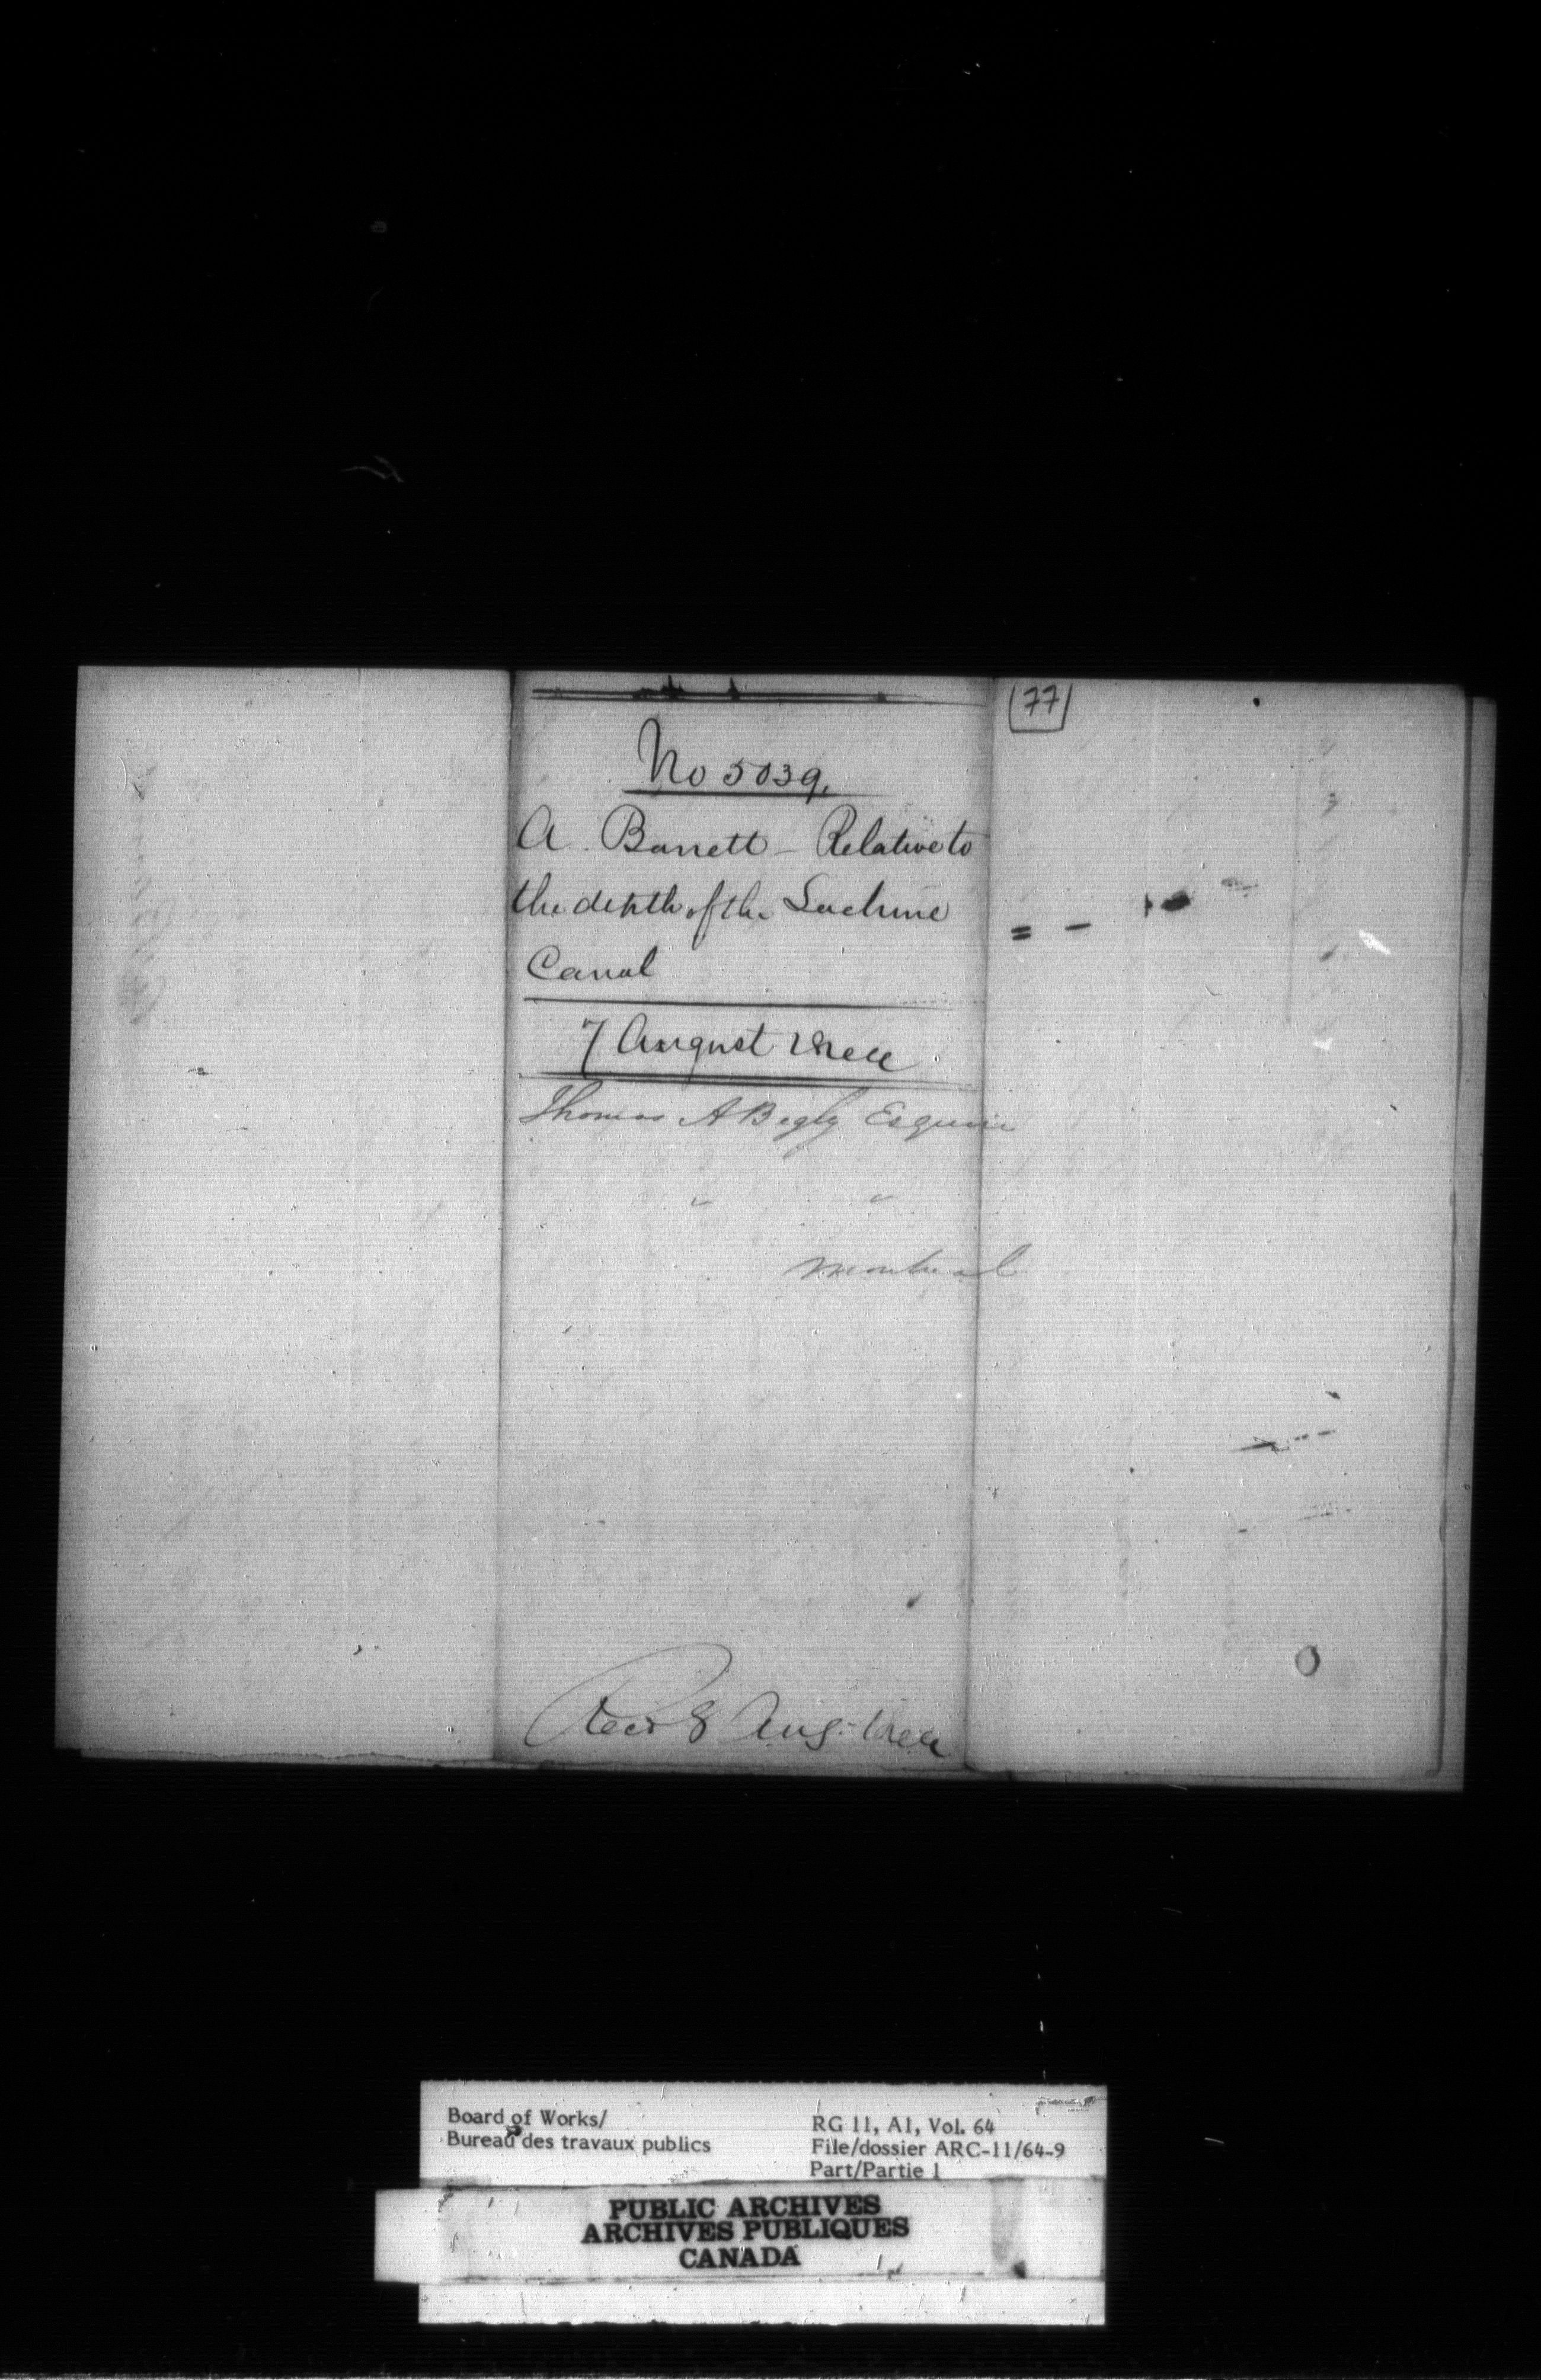 77
No 5039.
A. Barrett – Relative to
the depth of the Lachine
Canal
7 August 1844
Thomas A Begly Esquire
" "
Montreal
Recd 8 Aug: 1844
Board of Works/
Bureau des travaux publics
RG 11, A1, Vol. 64
File/dossier ARC-11/64-9
Part/Partie 1
PUBLIC ARCHIVES
ARCHIVES PUBLIQUES
CANADA